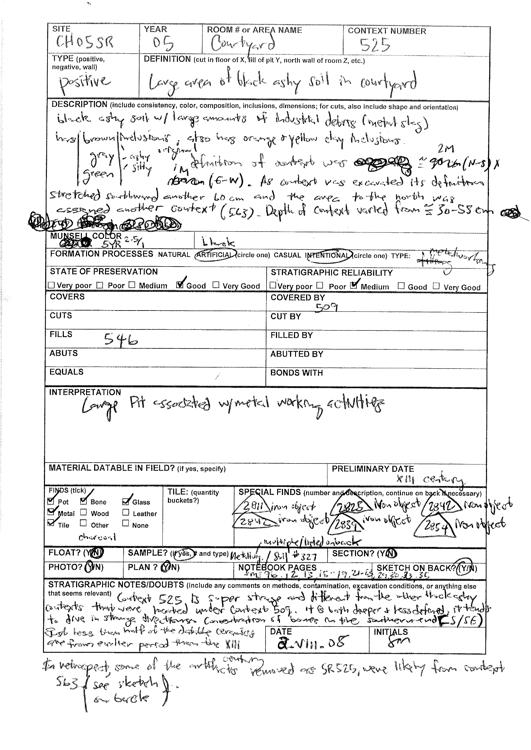 SITE YEAR ROOM # OR AREA NAME CONTEXT NUMBER
CH05SR 05 Courtyard 525
TYPE (positive, negative, wall) DEFINITION (cut in floor of X, fill of pit Y, north wall of room Z, etc.)
positive Large area of black ashy soil in courtyard
DESCRIPTION (include consistency, color, composition, inclusions, dimensions; for cuts, also include shape and orientation)
black ashy soil w/ large amounts of industrial debris (metal slag)
brown inclusions, also has orange & yellow clay inclusions.
gray ashy original 2M
green silty definition of context was (N-S) X
M (E-W). As context was excavated its definition
stretched southward another 60 cm and the area to the north was
assigned another context (563). Depth of context varied from ≈ 30-55 cm
MUNSELL COLOR 5YR 2.5/1 black
FORMATION PROCESSES NATURAL ARTIFICIAL (circle one) CASUAL INTENTIONAL (circle one) TYPE: metalworking
STATE OF PRESERVATION STRATIGRAPHIC RELIABILITY
Very poor Poor Medium Good Very Good Very poor Poor Medium Good Very Good
COVERS COVERED BY
509
CUTS CUT BY
FILLS 546 FILLED BY
ABUTS ABUTTED BY
EQUALS BONDS WITH
INTERPRETATION
Large Pit associated w/metal working activities
MATERIAL DATABLE IN FIELD? (if yes, specify) PRELIMINARY DATE
XIII century
FINDS (tick) TILE: (quantity buckets?) SPECIAL FINDS (number and description, continue on back if necessary)
Pot Bone Glass 2811 iron object 2825 iron object 2842 iron object
Metal Wood Leather 2847 iron object 2839 iron object 2854 iron object
Tile Other None
charcoal multiple listed on back
FLOAT? (Y/N) SAMPLE? (if yes, # and type) Metal slag / Soil #327 SECTION? (Y/N)
PHOTO? (Y/N) PLAN? (Y/N) NOTEBOOK PAGES SKETCH ON BACK? (Y/N)
STRATIGRAPHIC NOTES/DOUBTS (Include any comments on methods, contamination, excavation conditions, or anything else that seems relevant)
Context 525 is super strange and different from the other thick ashy
contexts that were located under context 509. It is both deeper & less defined, it tends
to dive in strange directions. Concentration of bones on the southern end (S/SE)
less than half of the datable ceramics
are from earlier period than the XIII century
DATE INITIALS
2-VIII-08 gm
In retrospect, some of the artifacts removed as SR525, were likely from context
563 (see sketch on back).